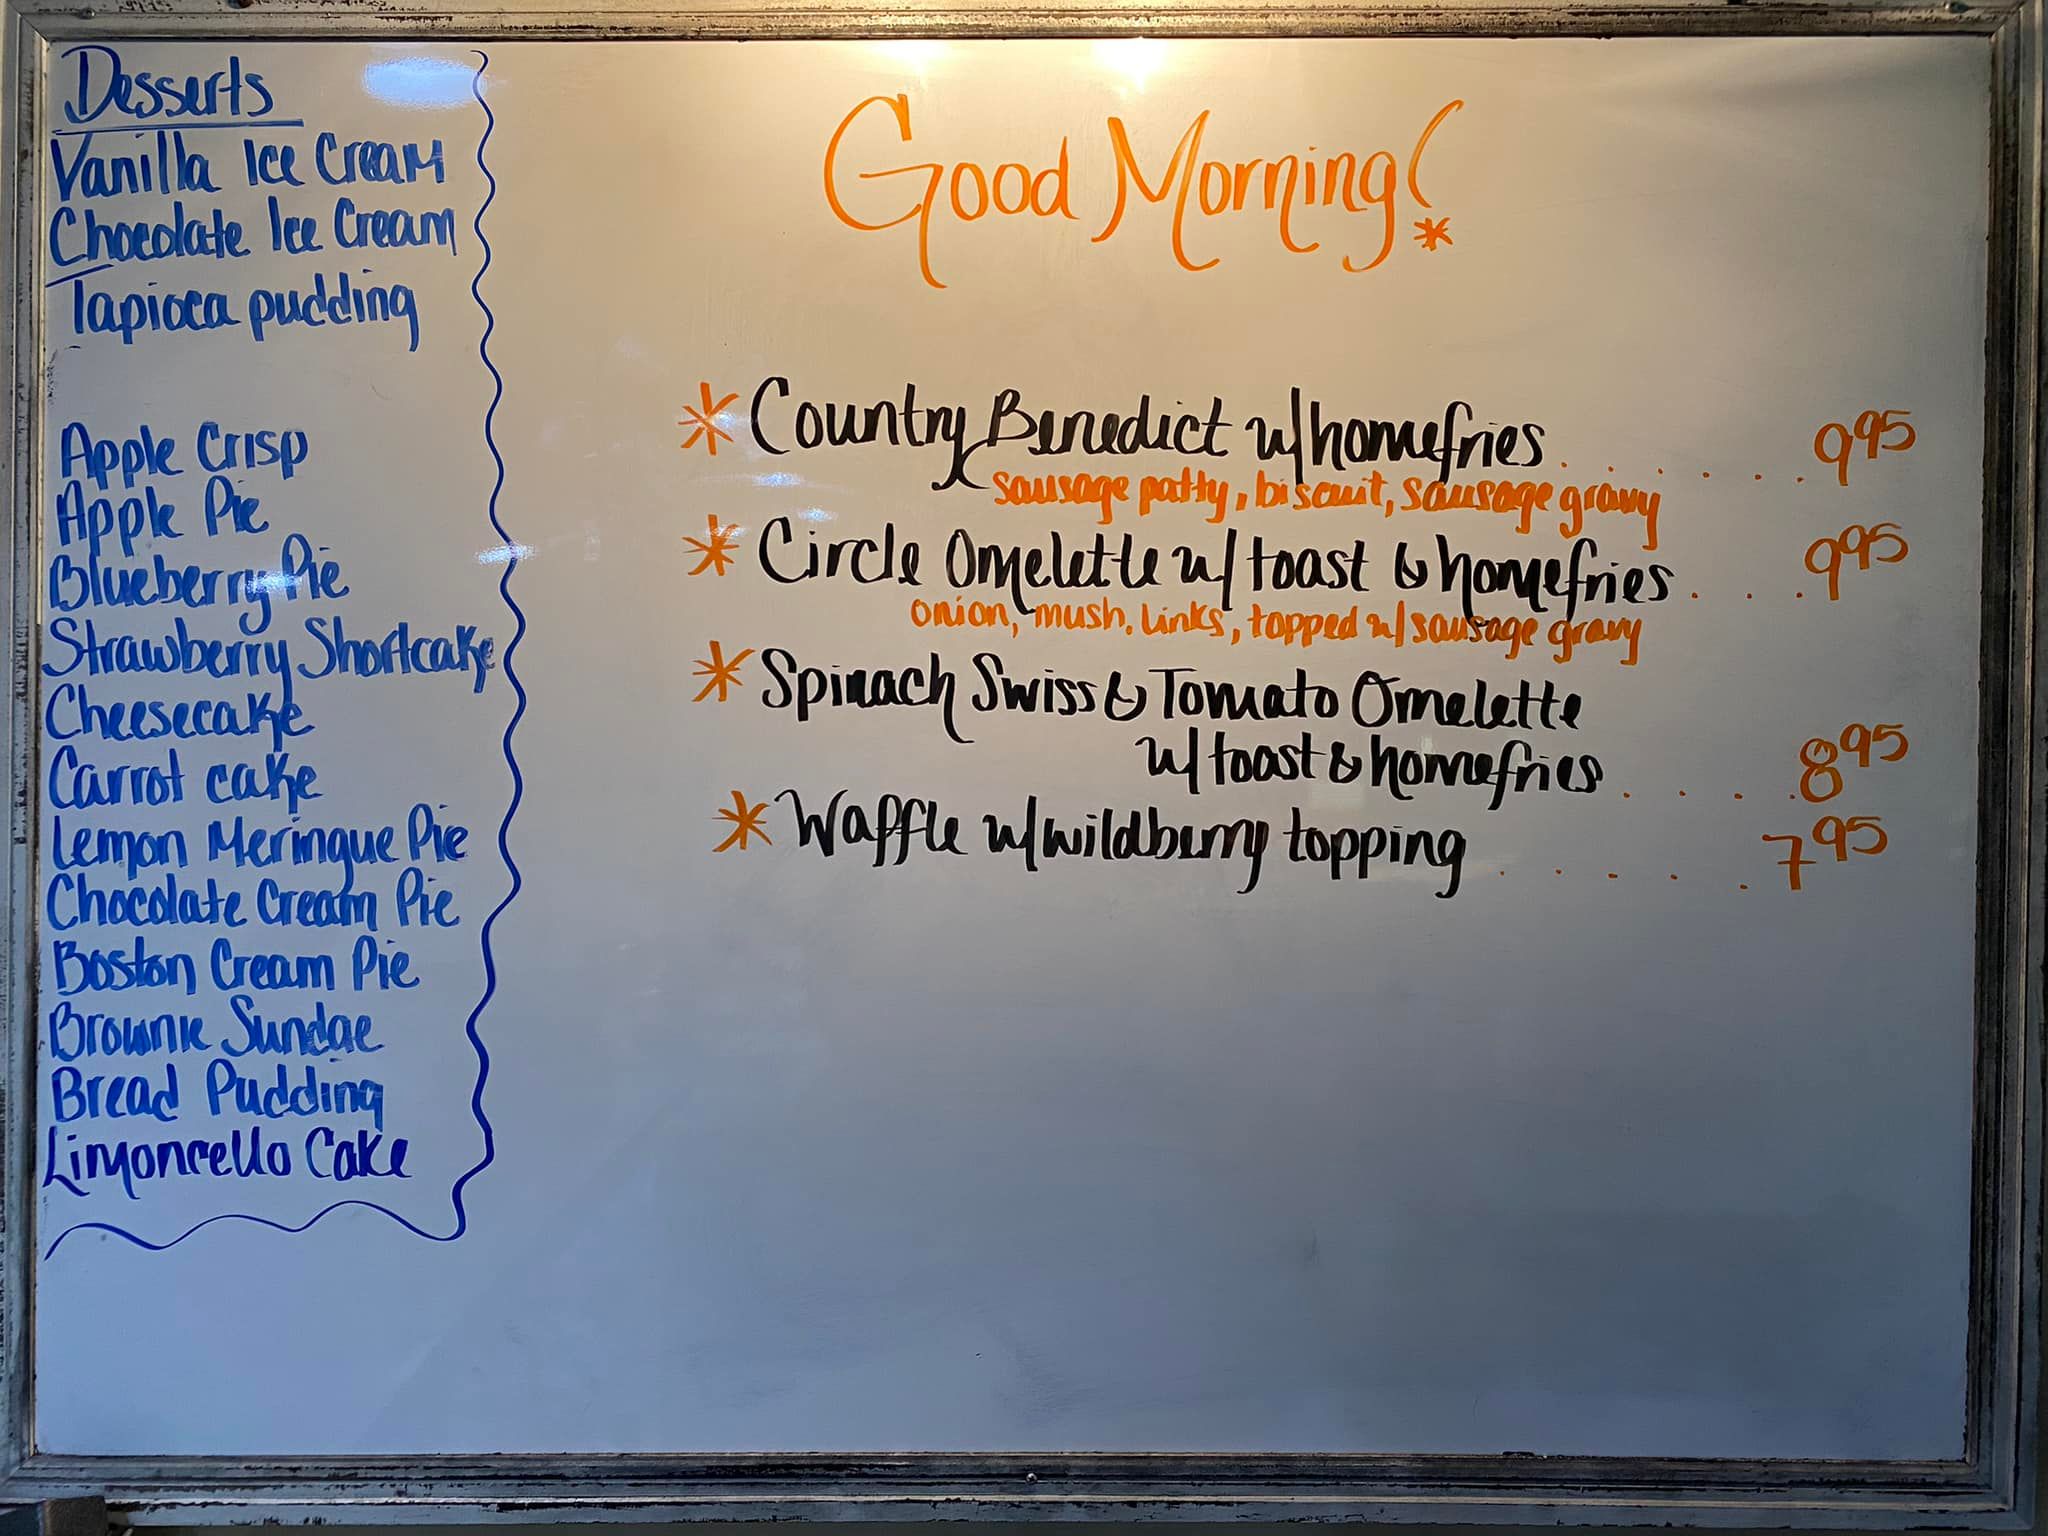 Desserts
Vanilla Ice Cream
Chocolate Ice Cream
Tapioca pudding
Apple Crisp
Apple Pie
Blueberry Pie
Strawberry Shortcake
Cheesecake
Carrot cake
Lemon Meringue Pie
Chocolate Cream Pie
Boston Cream Pie
Brownie Sundae
Bread Pudding
Limoncello Cake
Good Morning!
* Country Benedict w/homefries. . . . . . . 9 95
sausage patty, biscuit, sausage gravy
* Circle Omelette w/ toast & homefries . . . . 9 95
onion, mush, links, topped w/ sausage gravy
* Spinach Swiss & Tomato Omelette
w/ toast & homefries . . . . . 8 95
* Waffle w/wildberry topping . . . . . . 7 95